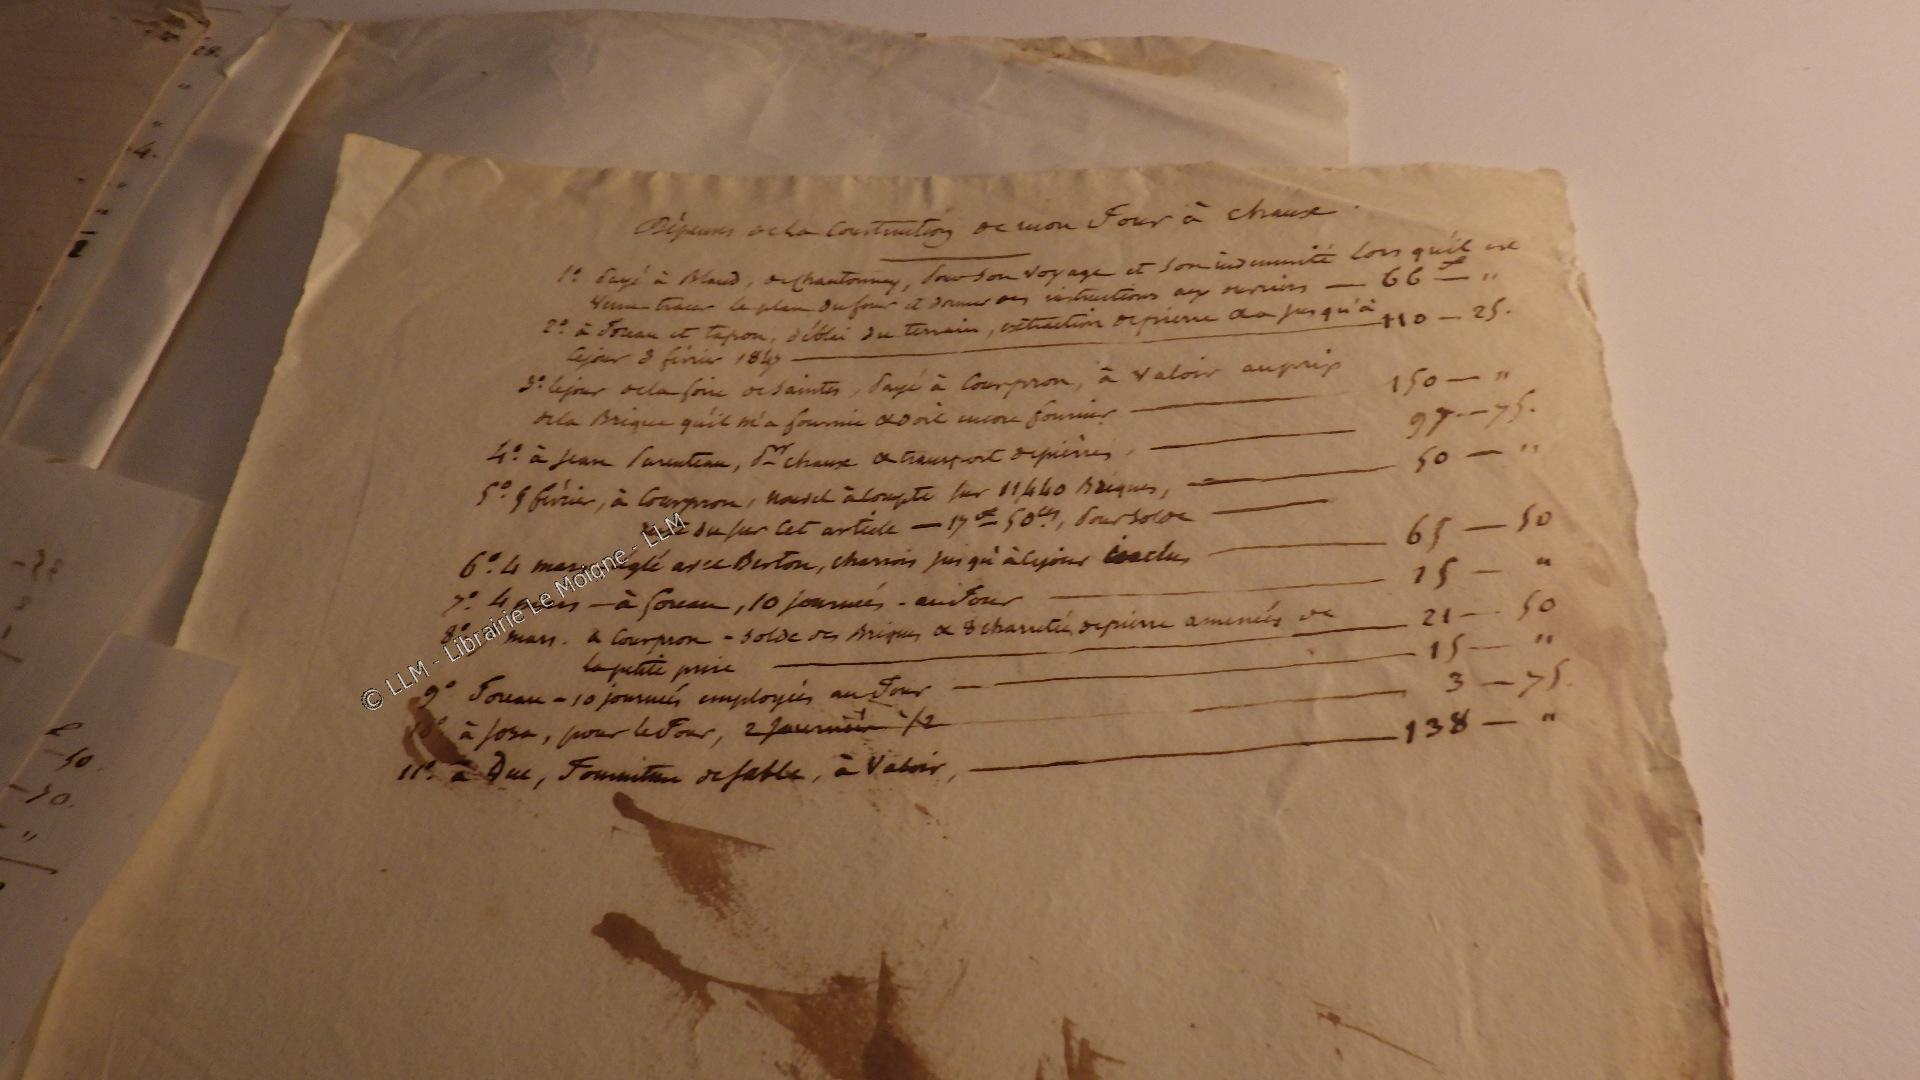 Dépenses de la Construction de mon Four à chaux.
1° payé à Blaud, de chantonnay, pour son voyage et son indemnité lors qu'il est
venu tracer le plan du four et donner des instructions aux ouvriers — 66 f — "
2° à Foreau et tapon, déblai du terrain, extraction de pierre &a jusqu'à
110 — 25.
le jour 3 février 1847
3° le jour de la foire de Saintes, payé à Courpron, à valoir au prix
150 — "
de la Brique qu'il m'a fournie & doit encore fournir
97 — 75.
4° à jean parenteau, pr chaux & transport de pierres,
50 — "
5° 9 février, à Courpron, à compte sur 11440 Briques,
du sur cet article — 17 f 50 cs, pour solde
65 — 50
6° 4 mars réglé avec Berton, charrois jusqu'à le jour
15 — "
7° 4 mars — à foreau, 10 journées - au Four
21 — 50
8° mars. à Courpron - solde des Briques & 8 charretées de pierre amenées de
la petite prise
15 — "
9° Foreau - 10 journées employées au Four
3 — 75.
10° à josa, pour le Four, 2 journées 1/2
138 — "
11° à Due, Fourniture de sable, à valoir,
28.
4.
50.
© LLM - Librairie Le Moigne - LLM